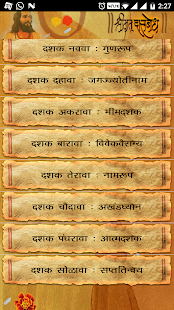 2:27
श्रीमत् दासबोध
दशक नववा : गुणरूप
दशक दहावा : जगज्ज्योतीनाम
दशक अकरावा : भीमदशक
दशक बारावा : विवेकवैराग्य
दशक तेरावा : नामरूप
दशक चौदावा : अखंडध्यान
दशक पंधरावा : आत्मदशक
दशक सोळावा : सप्ततिन्वय